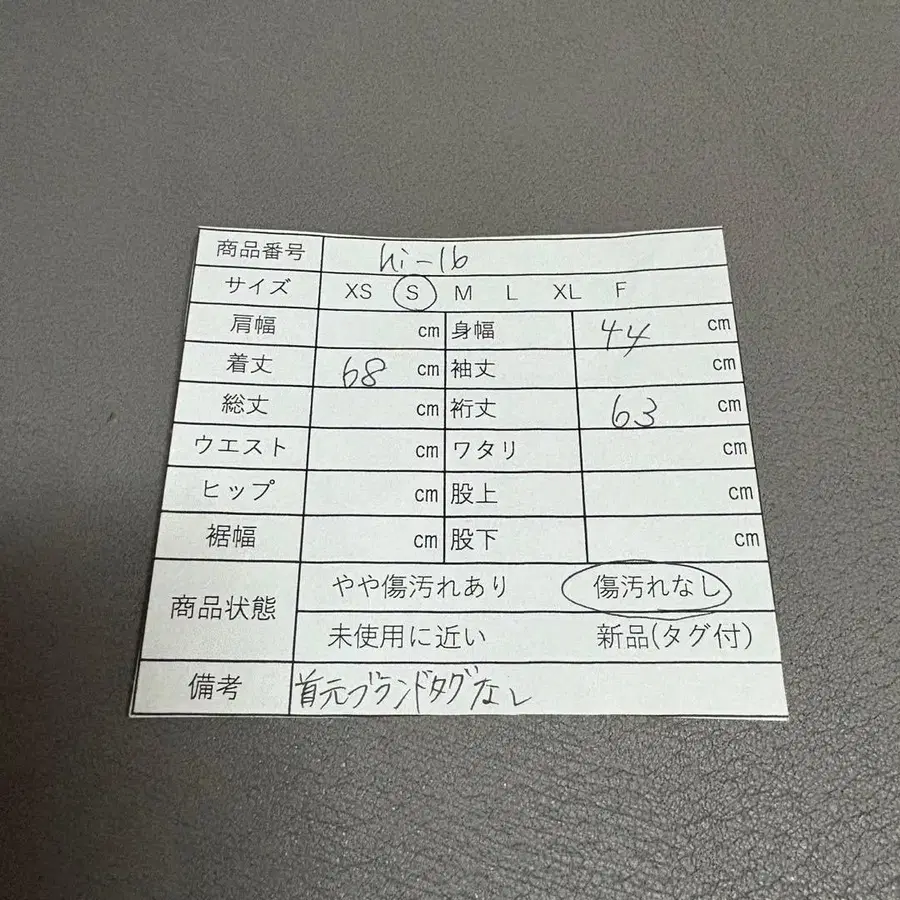 商品番号 hi-16
サイズ XS S M L XL F
肩幅 cm 身幅 44 cm
着丈 68 cm 袖丈 cm
総丈 cm 裄丈 63 cm
ウエスト cm ワタリ cm
ヒップ cm 股上 cm
裾幅 cm 股下 cm
商品状態 やや傷汚れあり 傷汚れなし
未使用に近い 新品(タグ付)
備考 首元ブランドタグなし